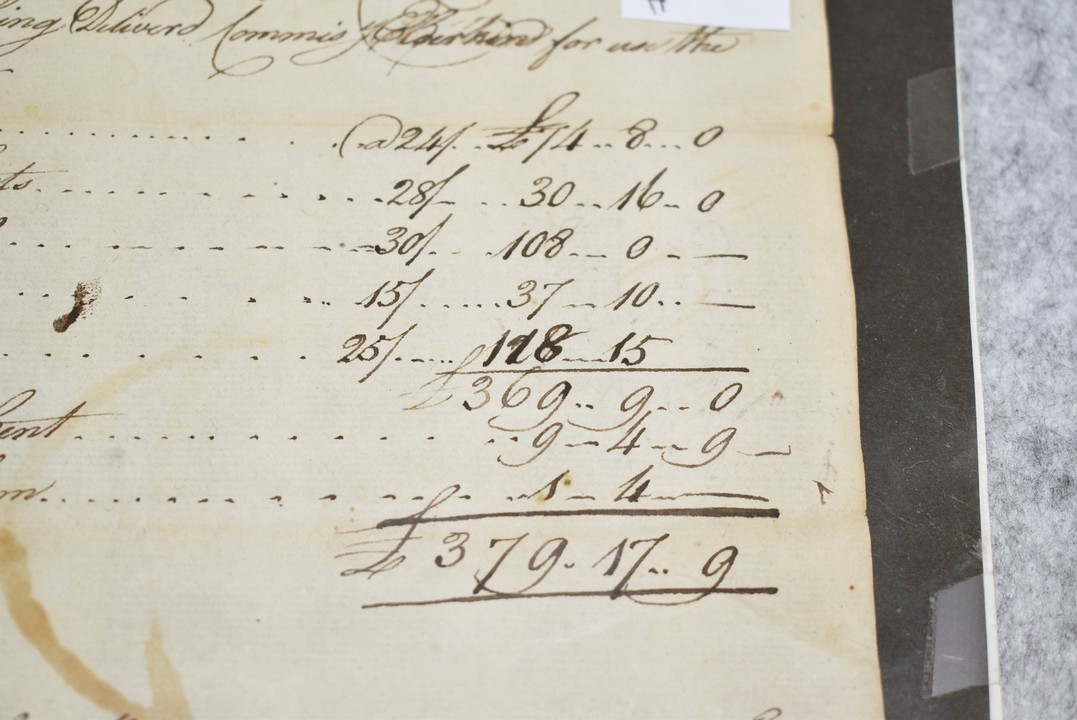 ing Deliverd Commisy Elderkind for use the
@ 24/. £74..8...0
ts 28/ 30..16..0
30/. 108...0
15/ 37..10..
25/ 118...15
£369..9...0
Cent 9..4..9
m 1..4
£379..17..9